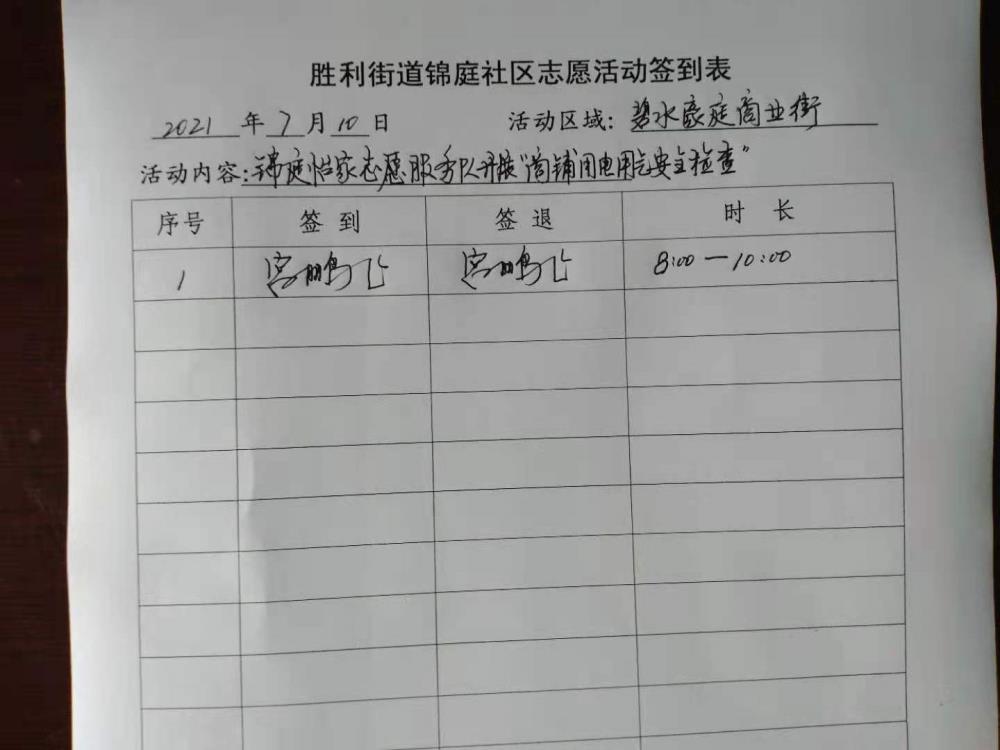 胜利街道锦庭社区志愿活动签到表
2021 年 7 月 10 日 活动区域: 碧水豪庭商业街
活动内容: 锦庭怡家志愿服务队开展"商铺用电用气安全检查"
序号 签到 签退 时长
1 宫鹏飞 宫鹏飞 8:00—10:00